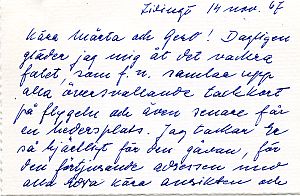 Lidingö 14 nov. 67
Kära Märta och Gerd! Dagligen
gläder jag mig åt det vackra
fatet, som f. n. samlar upp
alla översvallande tackkort
på flygeln och även senare får
en hedersplats. Jag tackar Er
så hjärtligt för den gåvan, för
den förtjusande adressen med
alla Edra kära ansikten och